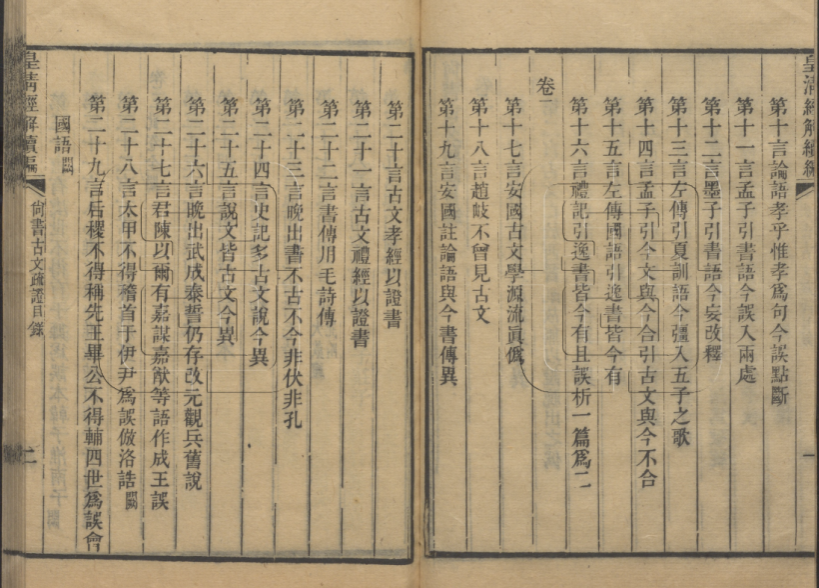 皇清經解續編
第十言論語孝乎惟孝爲句今誤點斷
第十一言孟子引書語今誤入兩處
第十二言墨子引書語今妄改釋
第十三言左傳引夏訓語今彊入五子之歌
第十四言孟子引今文與今合引古文與今不合
第十五言左傳國語引逸書皆今有
第十六言禮記引逸書皆今有且誤析一篇爲二
卷二
第十七言安國古文學源流眞僞
第十八言趙岐不曾見古文
第十九言安國註論語與今書傳異
第二十言古文孝經以證書
第二十一言古文禮經以證書
第二十二言書傳用毛詩傳
第二十三言晚出書不古不今非伏非孔
第二十四言史記多古文說今異
第二十五言說文皆古文今異
第二十六言晚出武成泰誓仍存改元觀兵舊說
第二十七言君陳以爾有嘉謀嘉猷等語作成王誤
第二十八言太甲不得稽首于伊尹爲誤倣洛誥闕
第二十九言后稷不得稱先王畢公不得輔四世爲誤會
國語闕
皇清經解續編
尚書古文疏證目錄
二